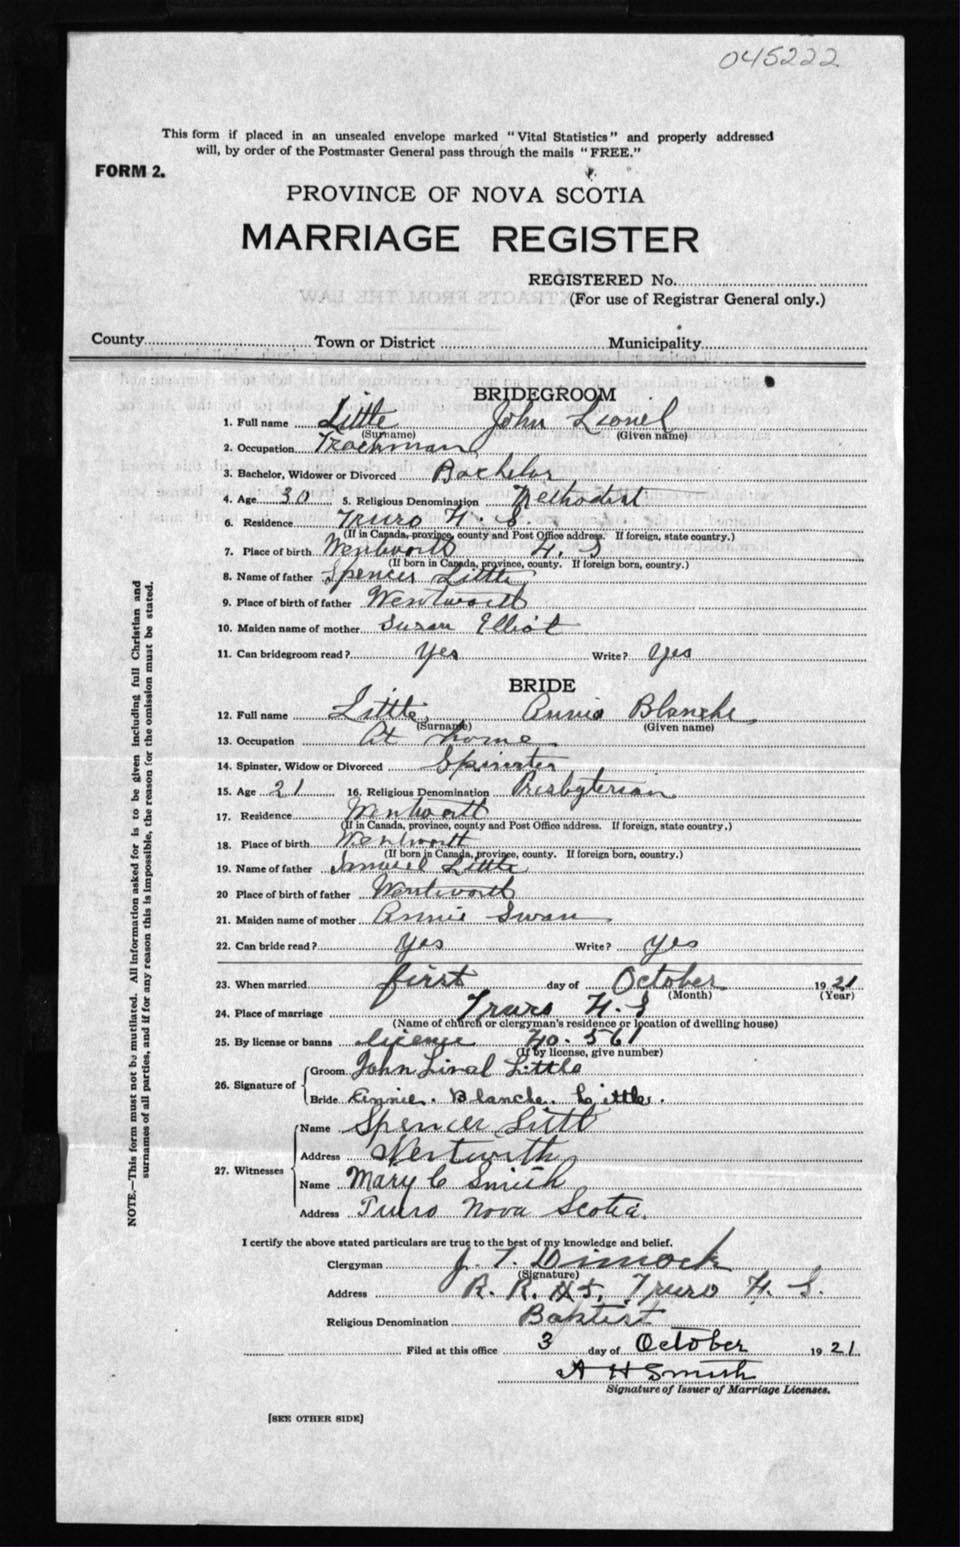 045222
This form if placed in an unsealed envelope marked "Vital Statistics" and properly addressed
will, by order of the Postmaster General pass through the mails "FREE."
FORM 2.
PROVINCE OF NOVA SCOTIA
MARRIAGE REGISTER
REGISTERED No.
(For use of Registrar General only.)
County Town or District Municipality
BRIDEGROOM
1. Full name Little John Lionel
(Surname) (Given name)
2. Occupation Trackman
3. Bachelor, Widower or Divorced Bachelor
4. Age 30 5. Religious Denomination Methodist
6. Residence Truro N. S.
(If in Canada, province, county and Post Office address. If foreign, state country.)
7. Place of birth Wentworth N. S
(If born in Canada, province, county. If foreign born, country.)
8. Name of father Spencer Little
9. Place of birth of father Wentworth
10. Maiden name of mother Susan Elliot
11. Can bridegroom read? Yes Write? Yes
BRIDE
12. Full name Little, Annie Blanche
(Surname) (Given name)
13. Occupation At home
14. Spinster, Widow or Divorced Spinster
15. Age 21 16. Religious Denomination Presbyterian
17. Residence Wentworth
(If in Canada, province, county and Post Office address. If foreign, state country.)
18. Place of birth Wentworth
(If born in Canada, province, county. If foreign born, country.)
19. Name of father Samuel Little
20 Place of birth of father Wentworth
21. Maiden name of mother Annie Swan
22. Can bride read? Yes Write? Yes
23. When married first day of October 1921
(Month) (Year)
24. Place of marriage Truro N. S
(Name of church or clergyman's residence or location of dwelling house)
25. By license or banns License No. 561
(If by license, give number)
26. Signature of
Groom John Linal Little
Bride Annie. Blanche. Little.
27. Witnesses
Name Spencer Littl
Address Wentworth
Name Mary C Smith
Address Truro Nova Scotia.
I certify the above stated particulars are true to the best of my knowledge and belief.
Clergyman J. T. Dimock
(Signature)
Address R. R. #5, Truro N. S.
Religious Denomination Baptist
Filed at this office 3 day of October 1921
A H Smith
Signature of Issuer of Marriage Licenses.
[SEE OTHER SIDE]
NOTE.—This form must not be mutilated. All information asked for is to be given including full Christian and
surnames of all parties, and if for any reason this is impossible, the reason for the omission must be stated.